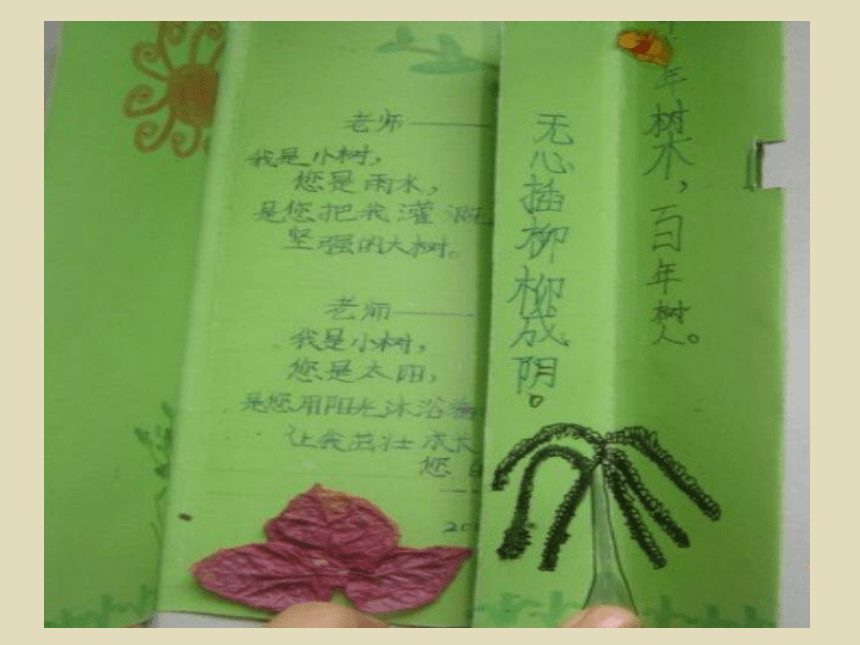 老师——
我是小树，
您是雨水，
是您把我灌溉
坚强的大树。
老师——
我是小树，
您是太阳，
是您用阳光沐浴
让我茁壮成长
您
20
无心插柳柳成阴。
年树木，百年树人。